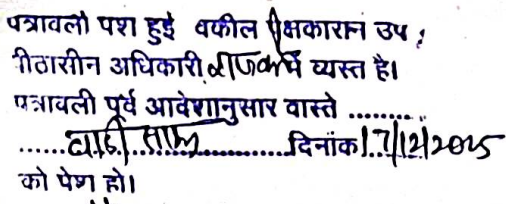 पत्रावली पेश हुई वकील पक्षकारान उप.
पीठासीन अधिकारी राजकार्य में व्यस्त है।
पत्रावली पूर्व आदेशानुसार वास्ते .........
......वादी साक्ष्य..................दिनांक 17/12/2025
को पेश हो।